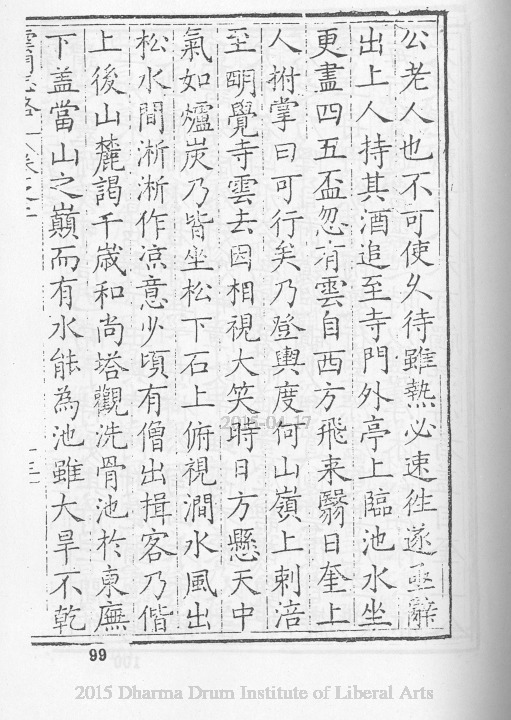 公老人也不可使久待雖熱必速徃遂亟辭
出上人持其酒追至寺門外亭上臨池水坐
更盡四五盃忽有雲自西方飛来翳日奎上
人拊掌曰可行矣乃登輿度何山嶺上剌涪
至明覺寺雲去因相視大笑時日方懸天中
氣如爐炭乃皆坐松下石上俯視澗水風出
松水間淅淅作凉意少頃有僧出揖客乃偕
上後山麓謁千歳和尚塔觀洗骨池於東廡
下盖當山之巔而有水能為池雖大旱不乾
雲門志略 卷之
2015-04-17
99
2015 Dharma Drum Institute of Liberal Arts